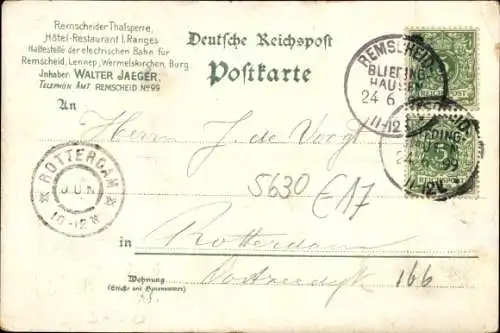 Remscheider Thalsperre,
Hôtel-Restaurant I. Ranges
Haltestelle der electrischen Bahn für
Remscheid, Lennep, Wermelskirchen, Burg.
Inhaber: WALTER JAEGER.
TELEPHON AMT REMSCHEID No 99
Deutsche Reichspost
Postkarte
REMSCHEID
BLIEDING-
HAUSEN
24 6
11-12
REICHSPOST
5
99
11-12V.
An
Herrn J. de Voogt
ROTTERDAM
JUN
10-12
5630 E17
in Rotterdam
Wohnung
(Straße und Hausnummer)
166